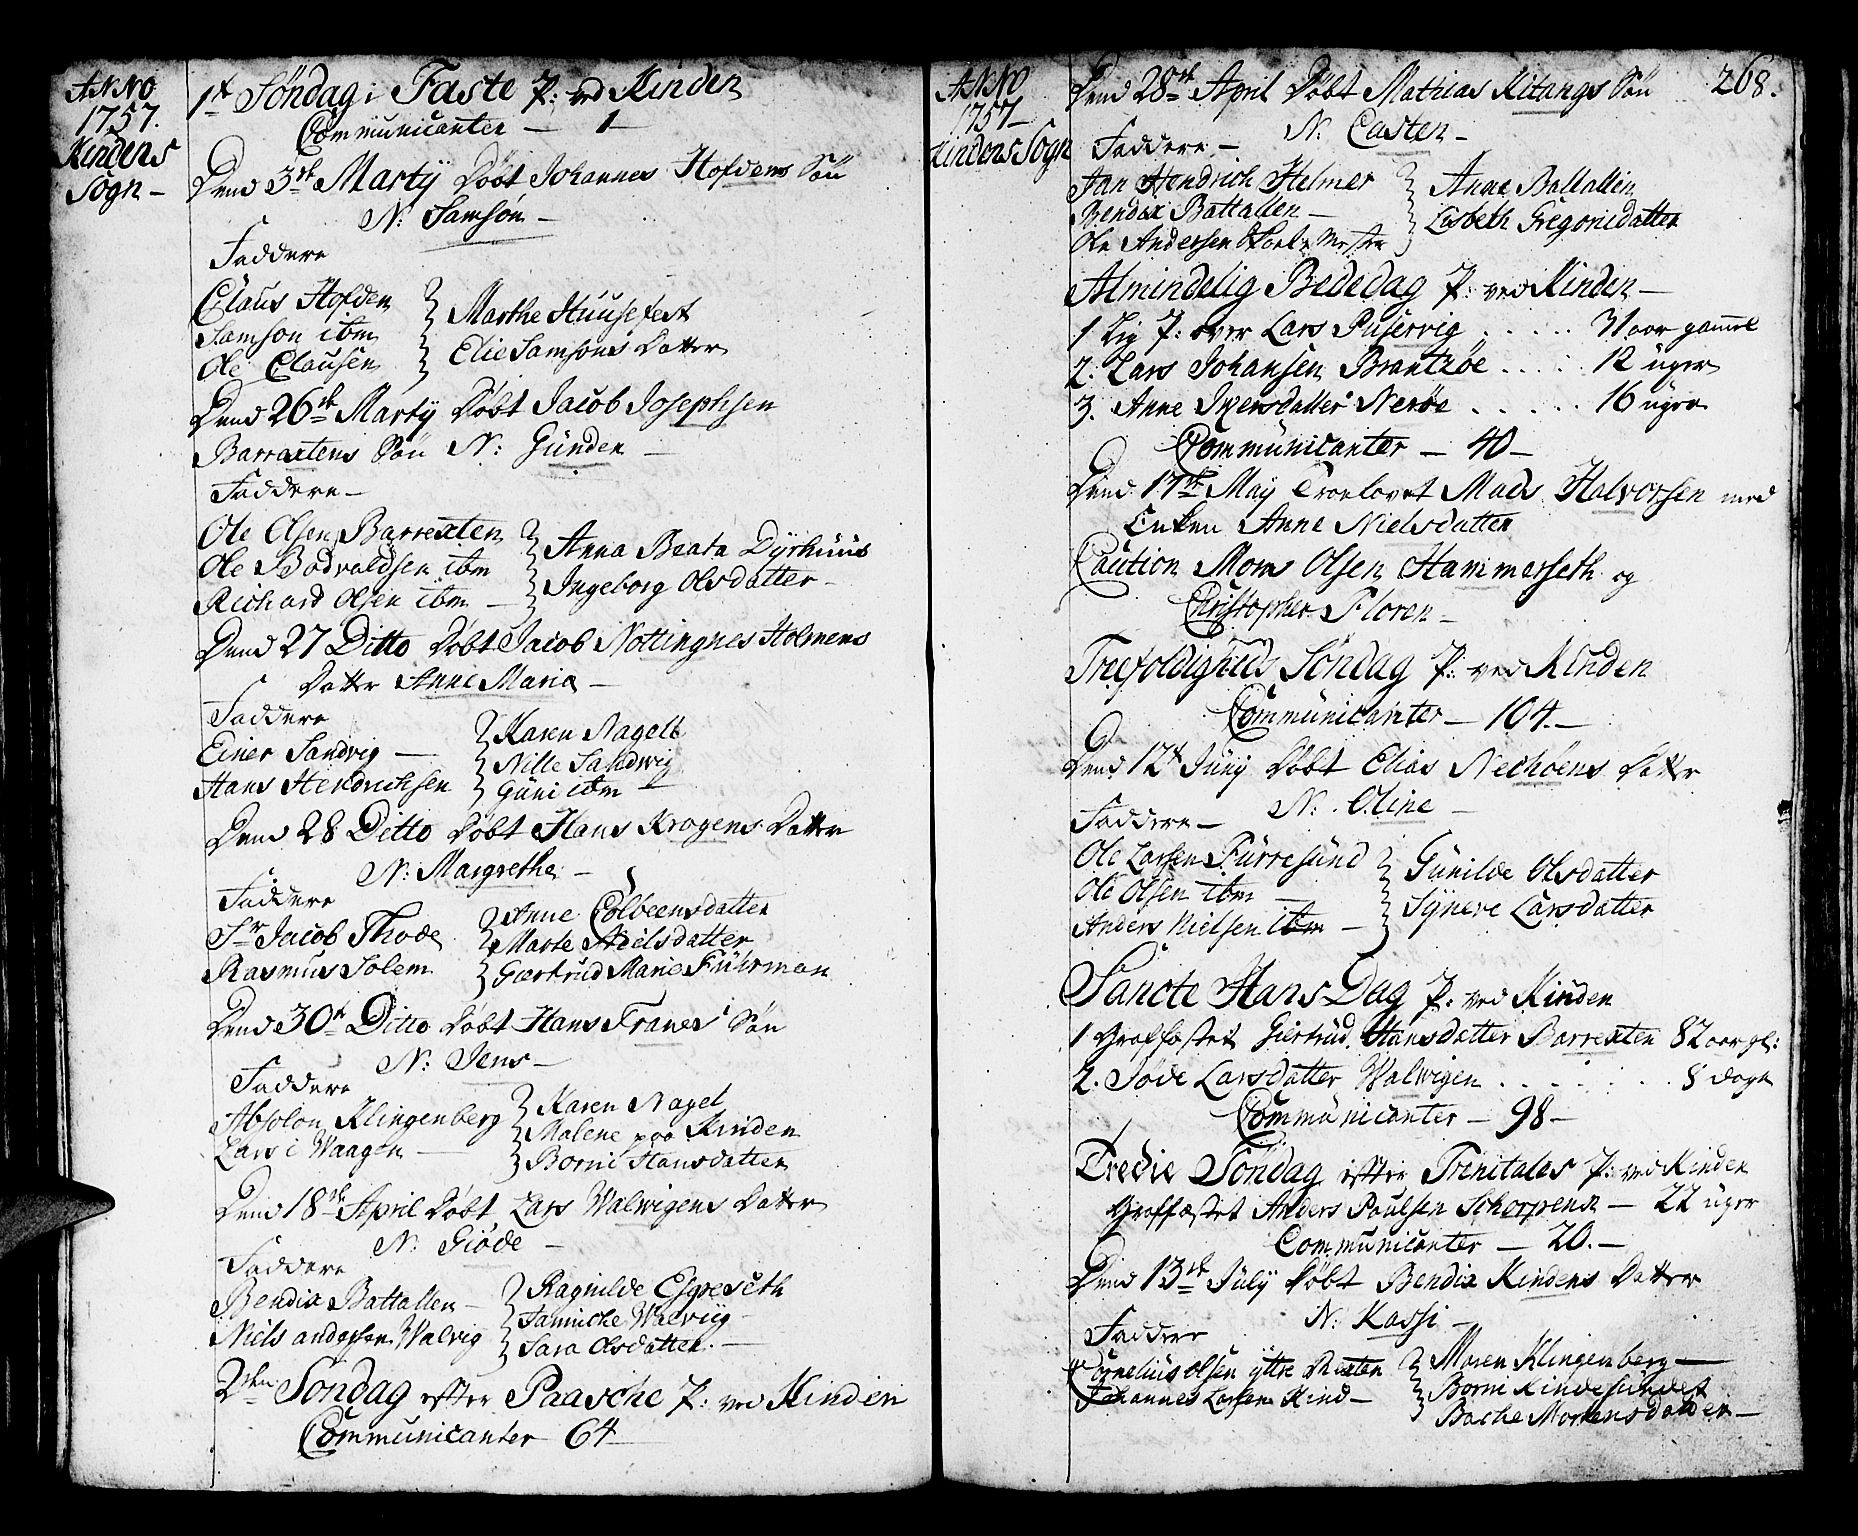 ANNO
1757.
Kindens
Sogn –
1t Söndag i Faste P: ved Kinden
Communicanter — 1 —
Dend 3de Martÿ Döbt Johannes Hofdens Sön
N: Samsön –
Faddere
Claus Hofden
Samson ibm
Ole Clausen
Marthe Huusefest
Elie Samsons Datter
Dend 26de Martÿ Döbt Jacob Josephsen
Barraxtens Sön N: Günder –
Faddere –
Ole Olsen Barrexten
Ole Bodvaldsen ibm
Richard Olsen ibm –
Anna Beata Dÿrhuus
Ingeborg Olsdatter –
Dend 27 Ditto Döbt Jacob Nottingnes Holmens
Datter Anne Maria –
Faddere
Einer Sandvig —
Hans Hendrichsen
Karen Nagell
Nille Sandwig
Guni ibm –
Dend 28 Ditto Döbt Hans Krogens Datter
N: Margrethe –
Faddere
Sr Jacob Thode
Rasmus Solem
Anne Colbeensdatter
Marte Nielsdatter
Giertrud Marie Fuhrman
Dend 30t Ditto Döbt Hans Franes Sön
N: Jens –
Faddere
Absolon Klingenberg
Lars i Waagen –
Karen Nagel
Malene paa Kinden
Borni Hansdatter
Dend 18de April Döbt Lars Walwigens Datter
N: Giöde –
Faddere
Bendix Battallen –
Niels andersen Walvig
Ragnilde Espeseth
Jannicke Walviig
Sara Olsdatter. –
2den Söndag efter Paasche P: ved Kinden
Communicanter 64
ANNO
1757 –
Kindens Sogn
268.
Dend 28de April Döbt Matias Kitangs Sön
N: Casten –
Faddere –
Jan Hendrich Helmer
Bendix Battallen –
Ole Andersen Skoele Mester
Anne Battallen
Lisbeth Gregorisdatter
Almindelig Bededag P: ved Kinden –
1 Lig P: over Lars Puservig . . . . . 31 aar gamml
2. Lars Johansen Brantzöe . . . . . 12 uger
3. Anne Iversdatter Neröe . . . . . 16 ugra
Communicanter — 40 –
Dend 17de Maÿ Troelovet Mads Halvorsen med
Enken Anne Nielsdatter
Caution Mons Olsen Hammerseth og
Christopher Floren –
Trefoldigheds Söndag P: ved Kinden
Communicanter — 104. –
Dend 12t Junÿ Döbt Elias Nechöens Datter
N: Oline –
Faddere –
Ole Larsen Fürresund
Ole Olsen ibm –
Anders Nielsen ibm –
Gunilde Olsdatter
Sÿneve Larsdatter
Sancte Hans Dag P: ved Kinden
1 Graffæstet Giertrud Hansdatter Barrexten 82 aar gl:
2. Jöde Larsdatter Walwigen . . . . . . . 8 dage
Communicanter — 98 –
Tredie Söndag efter Trinitates P: ved Kinden
Graffæstet Anders Poulsen Schorpens – 22 uger
Communicanter — 20. –
Dend 13de Julÿ Döbt Bendix Kindens Datter
N: Kassi –
Faddere
Cornelius Olsen ÿtre Rexten
Johannes Larsen Kind –
Maren Klingenberg —
Borni Kindesundet
Bache Mortensdatter –